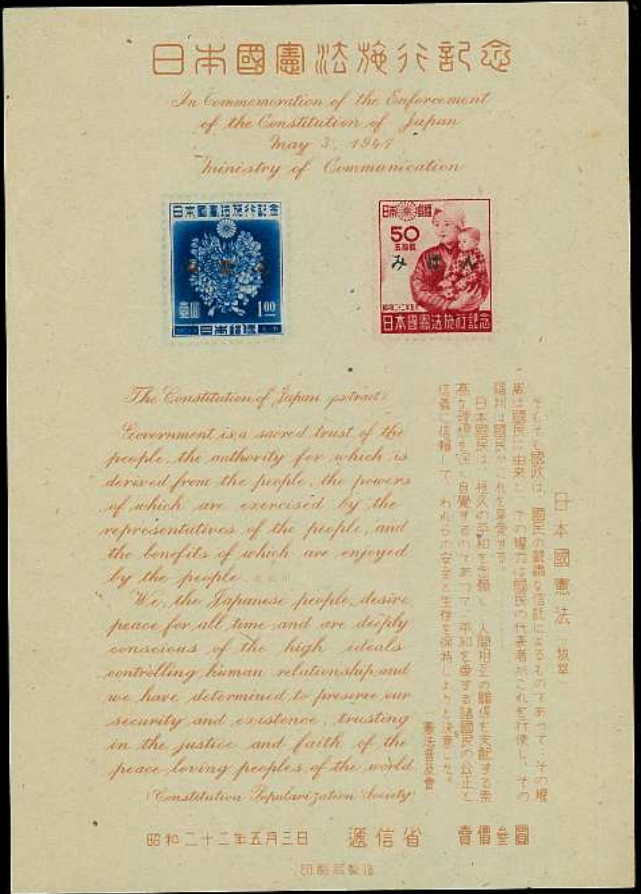 日本國憲法施行記念
In Commemoration of the Enforcement
of the Constitution of Japan
May 3, 1947
Ministry of Communication
日本國憲法施行記念
壹圓
1.00
日本郵便
日本郵便
50
五拾錢
みほん
昭和二十二年五月
日本國憲法施行記念
The Constitution of Japan extract:
Government is a sacred trust of the
people, the authority for which is
derived from the people, the powers
of which are exercised by the
representatives of the people, and
the benefits of which are enjoyed
by the people.
We, the Japanese people, desire
peace for all time and are deeply
conscious of the high ideals
controlling human relationship and
we have determined to preserve our
security and existence, trusting
in the justice and faith of the
peace-loving peoples of the world
(Constitution Popularization Society)
日本國憲法 拔萃
そもそも國政は、國民の嚴肅な信託によるものであつて、その權
威は國民に由來し、その權力は國民の代表者がこれを行使し、その
福利は國民がこれを享受する。
日本國民は、恒久の平和を念願し、人間相互の關係を支配する崇
高な理想を深く自覺するのであつて、平和を愛する諸國民の公正と
信義に信賴して、われらの安全と生存を保持しようと決意した。
憲法普及會
昭和二十二年五月三日 遞信省 賣價參圓
印刷局製造